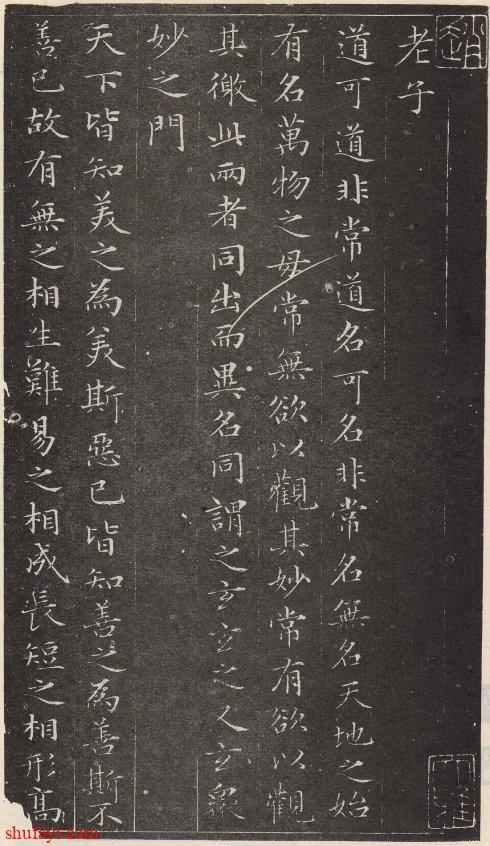 老子
道可道非常道名可名非常名無名天地之始
有名萬物之母常無欲以觀其妙常有欲以觀
其徼此兩者同出而異名同謂之玄玄之又玄衆
妙之門
天下皆知美之為美斯惡已皆知善之為善斯不
善已故有無之相生難易之相成長短之相形髙